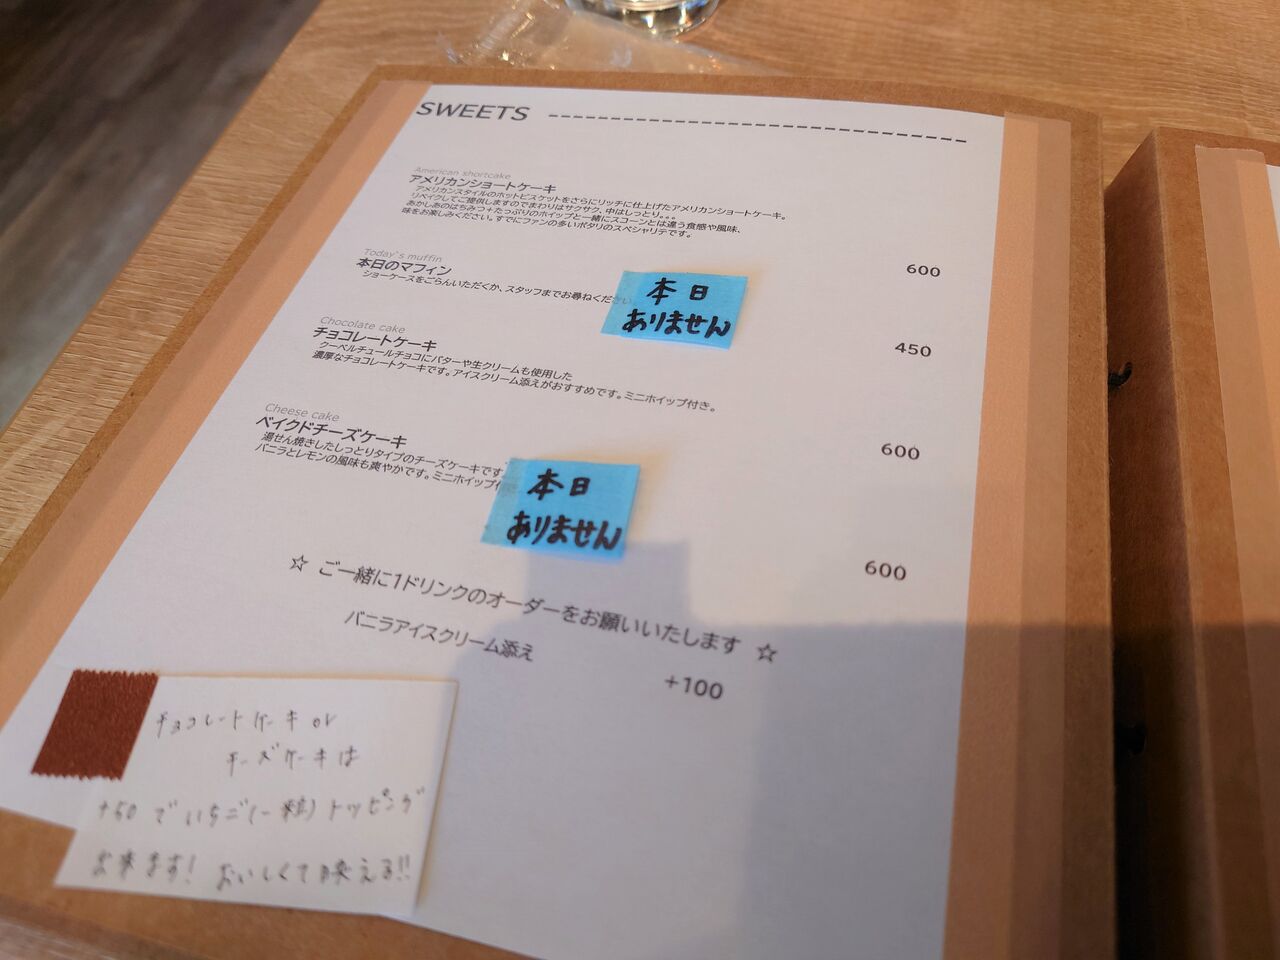 SWEETS
American shortcake
アメリカンショートケーキ
アメリカンスタイルのホットビスケットをさらにリッチに仕上げたアメリカンショートケーキ。
リベイクしてご提供しますのでまわりはサクサク、中はしっとり。。。
あかしあのはちみつ+たっぷりのホイップと一緒にスコーンとは違う食感や風味、
味をお楽しみください。すでにファンの多いポタリのスペシャリテです。
600
Today's muffin
本日のマフィン
ショーケースをごらんいただくか、スタッフまでお尋ねください
本日
ありません
450
Chocolate cake
チョコレートケーキ
クーベルチュールチョコにバターや生クリームも使用した
濃厚なチョコレートケーキです。アイスクリーム添えがおすすめです。ミニホイップ付き。
600
Cheese cake
ベイクドチーズケーキ
湯せん焼きしたしっとりタイプのチーズケーキです
バニラとレモンの風味も爽やかです。ミニホイップ付
本日
ありません
600
☆ ご一緒に1ドリンクのオーダーをお願いいたします ☆
バニラアイスクリーム添え
+100
チョコレートケーキ or
チーズケーキは
+50でいちご(一粒)トッピング
出来ます! おいしくて映える!!